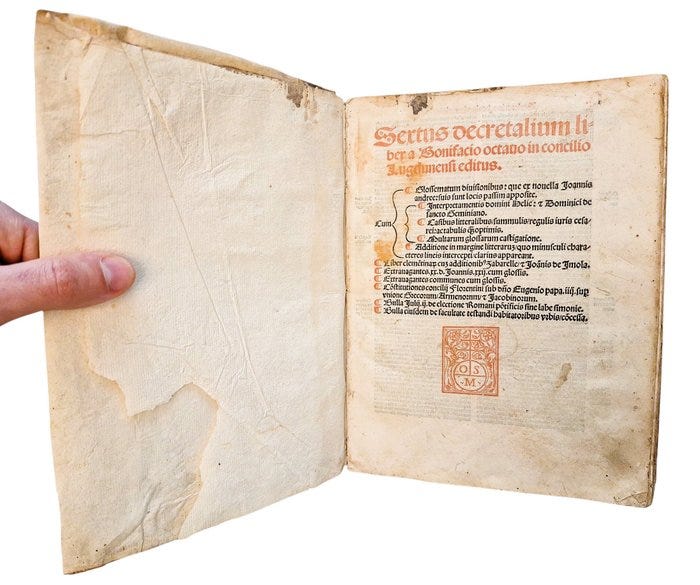 Sextus decretalium li-
ber a Bonifacio octauo in concilio
Lugdunensi editus.
Glossematum diuisionibus: que ex nouella Joannis
andree: suis sunt locis passim apposite.
Interpretamentis domini Helie: & Dominici de
sancto Geminiano.
Cum
Casibus litteralibus summulis regulis iuris cesa-
rei: actabulis quoptimis.
Multarum glossarum castigatione.
Additione in margine litterarum: quo minusculi chara-
cteres lineis intercepti clarius appareant.
Liber clementinarum cum additionibus zabarelle: & Joannis de Imola.
Extrauagantes .xx.d. Joannis .xxij. cum glossis.
Extrauagantes communes cum glossis.
Constitutiones concilij Florentini sub domino Eugenio papa .iiij. sup
vnione Grecorum Armenorum & Jacobinorum.
Bulla Julij .ij. de electione Romani pontificis sine labe simonie.
Bulla eiusdem de facultate testandi habitatoribus vrbis concessa.
O S
M